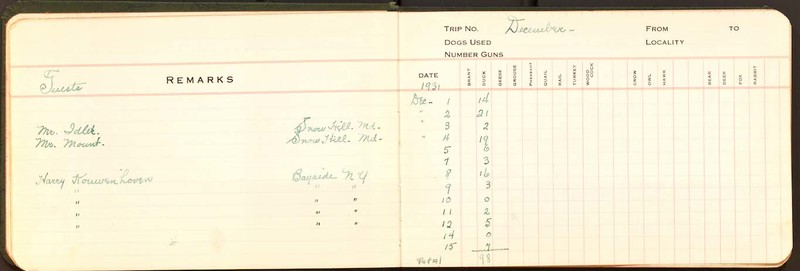 REMARKS
Guests
Mr. Idler. Snow Hill. Md.
Mr. Mount. Snow Hill. Md.
Harry Kouwenhoven Bayside NY
" " "
" " "
" " "
" " "
TRIP NO. December- FROM TO
DOGS USED LOCALITY
NUMBER GUNS
DATE BRANT DUCK GEESE GROUSE PHEASANT QUAIL RAIL TURKEY WOODCOCK CROW OWL HAWK BEAR DEER FOX RABBIT
1931
Dec- 1 14
" 2 21
" 3 2
" 4 19
5 6
7 3
8 16
9 3
10 0
11 2
12 5
14 0
15 7
Total 98